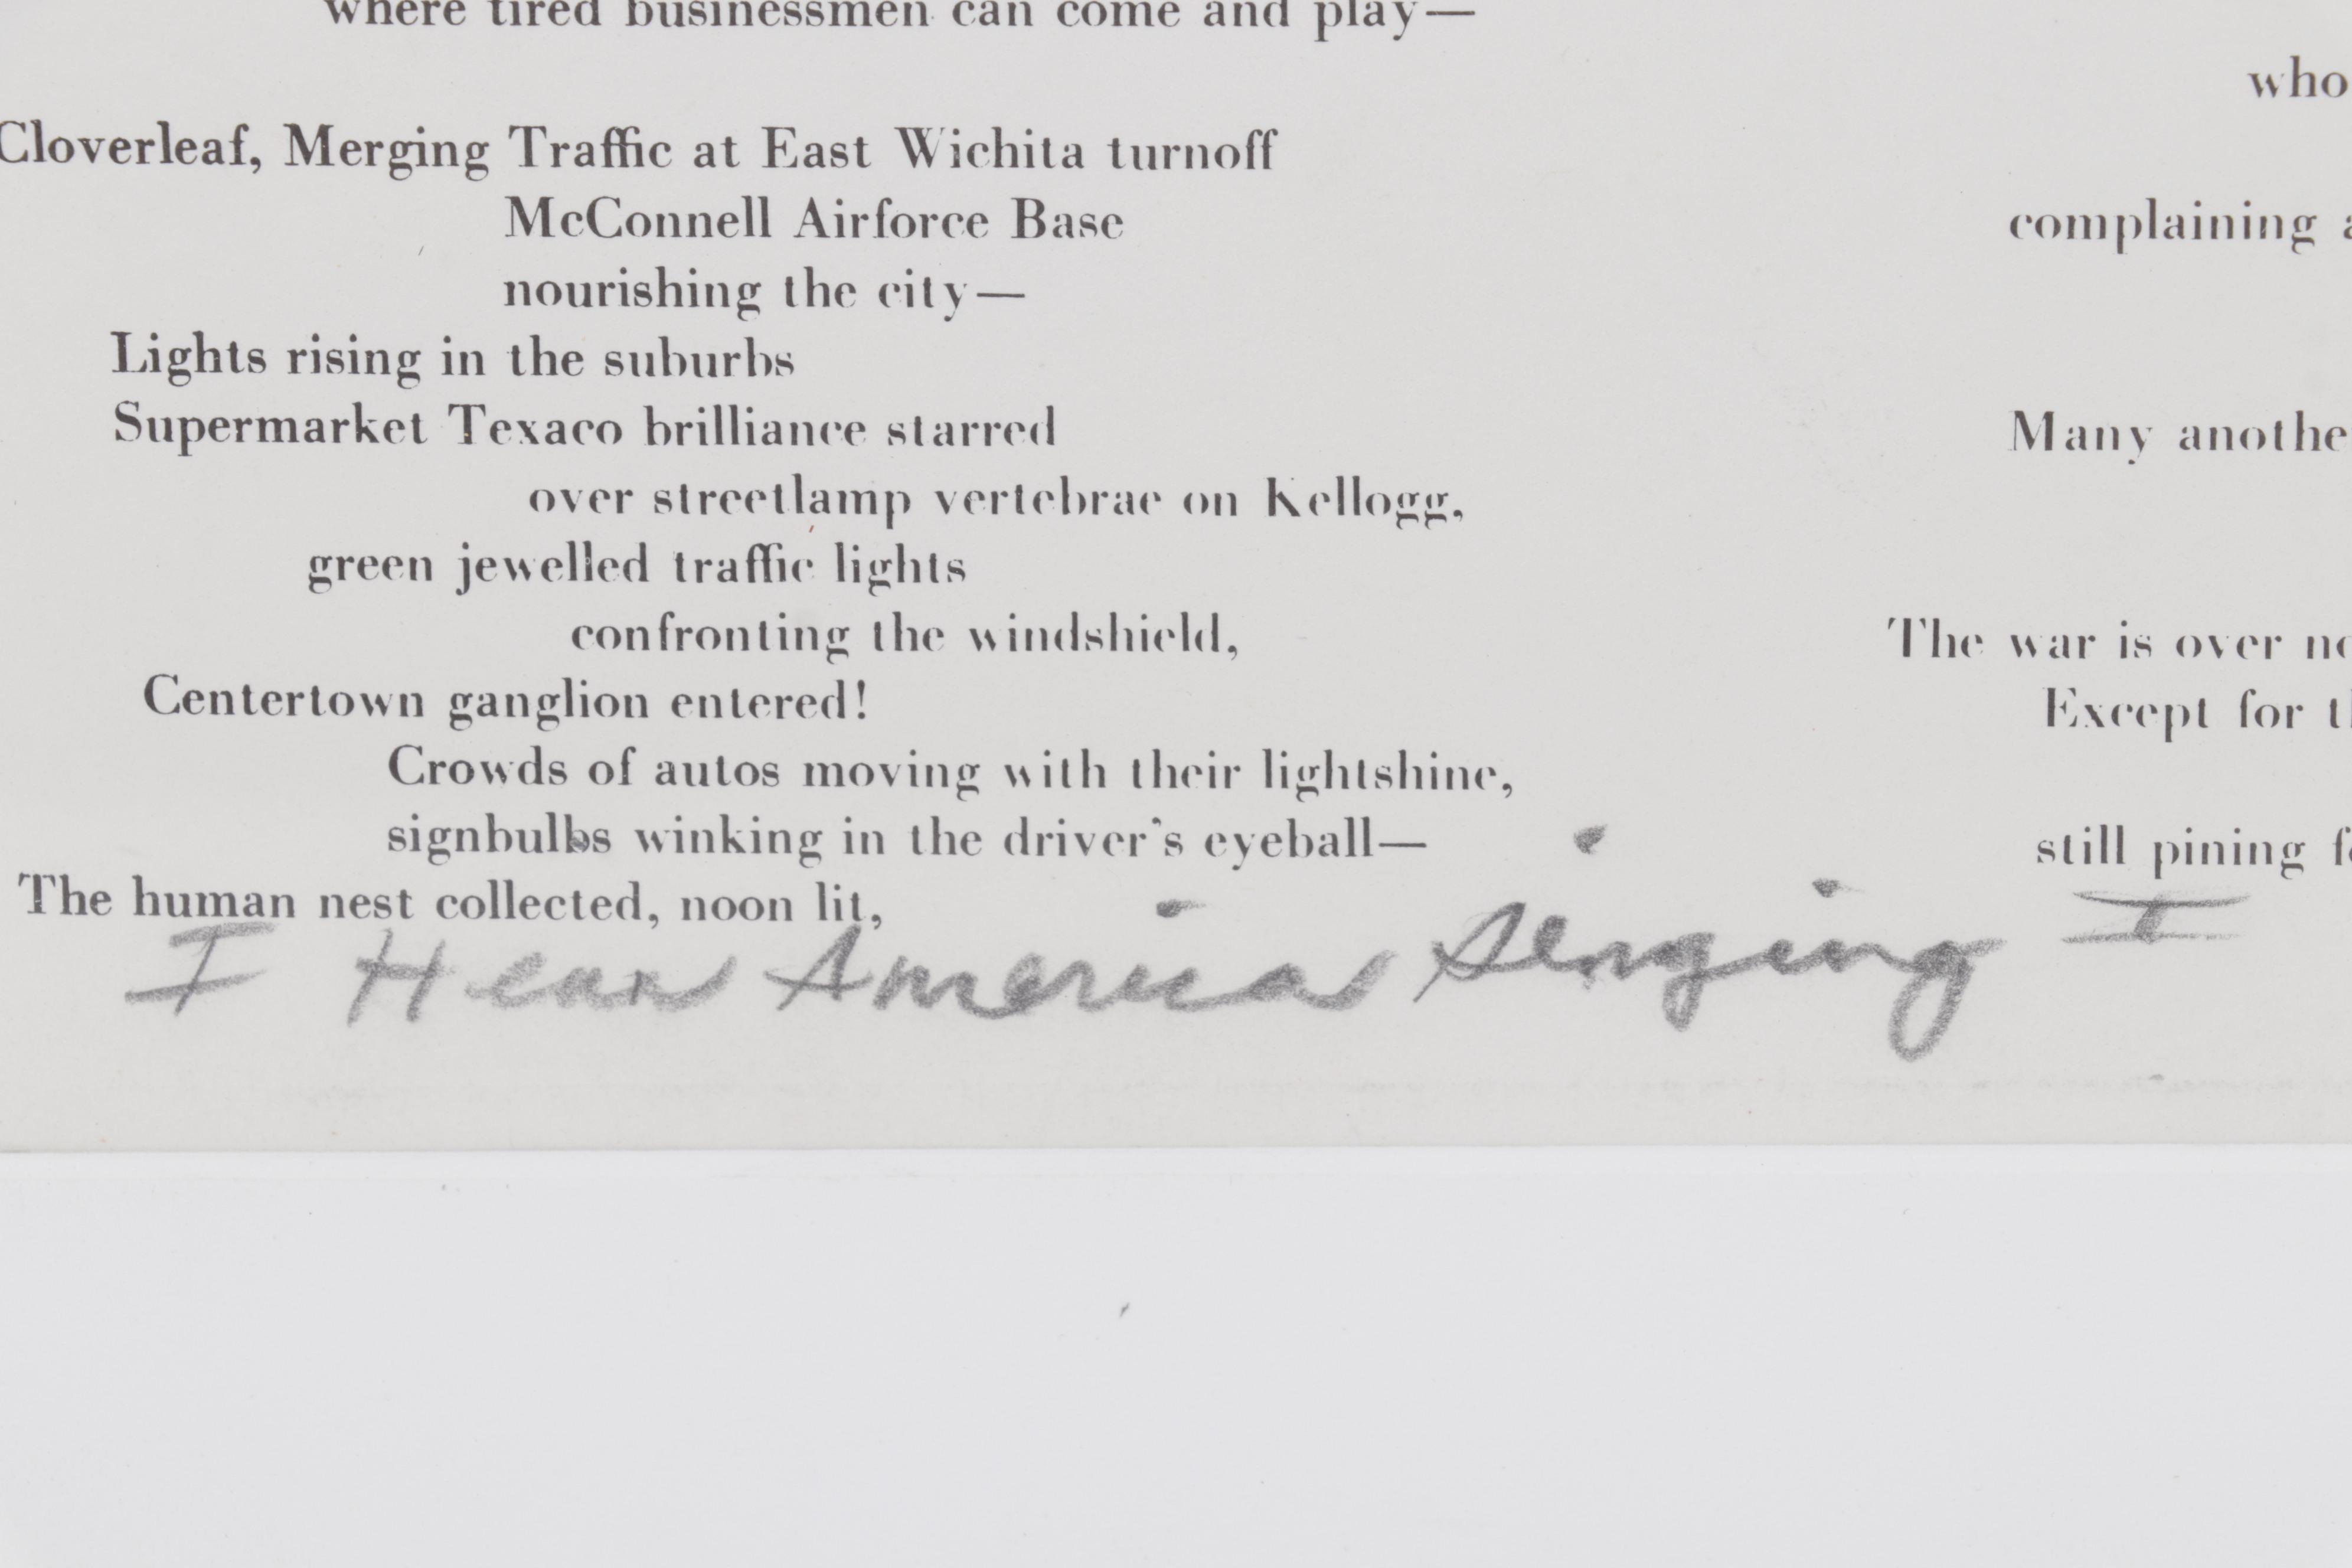 where tired businessmen can come and play—
Cloverleaf, Merging Traffic at East Wichita turnoff
McConnell Airforce Base
nourishing the city—
Lights rising in the suburbs
Supermarket Texaco brilliance starred
over streetlamp vertebrae on Kellogg,
green jewelled traffic lights
confronting the windshield,
Centertown ganglion entered!
Crowds of autos moving with their lightshine,
signbulbs winking in the driver's eyeball—
The human nest collected, noon lit,
I Hear America Singing I
who
complaining
Many
The war is over
Except for
still pining